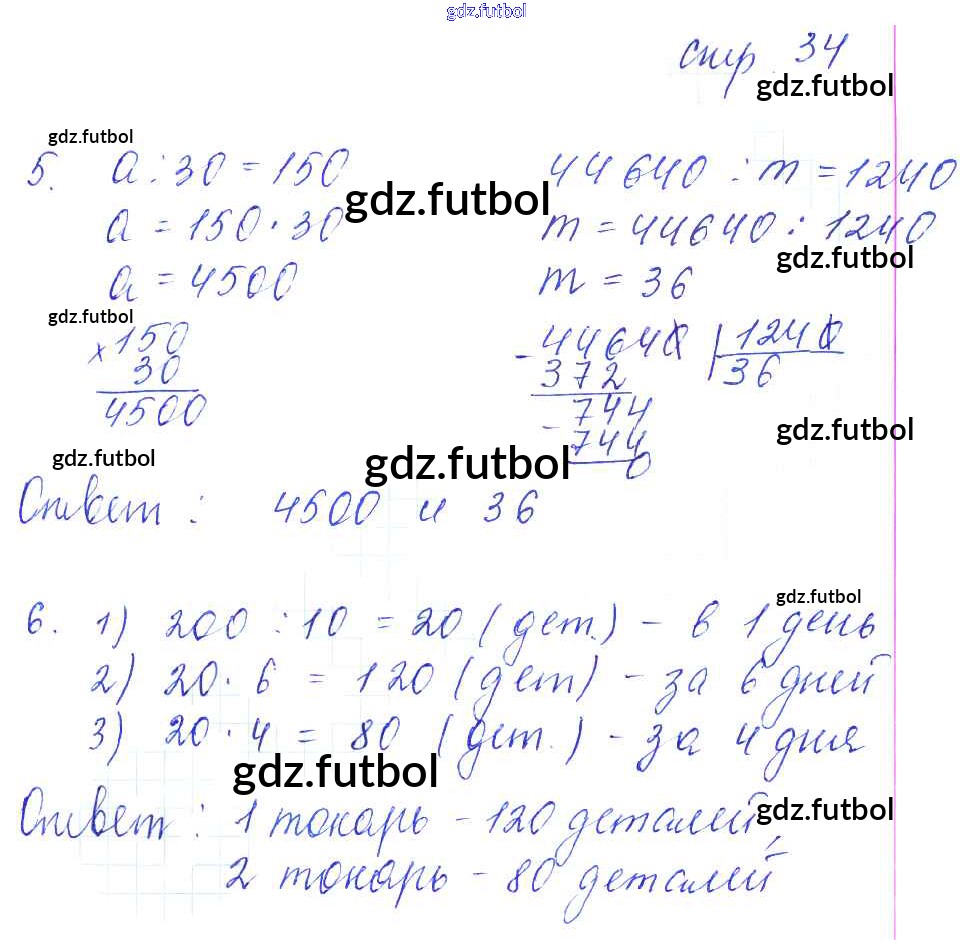 gdz.futbol
стр. 34
gdz.futbol
gdz.futbol
5. a : 30 = 150
44640 : m = 1240
gdz.futbol
a = 150 · 30
m = 44640 : 1240
gdz.futbol
a = 4500
m = 36
gdz.futbol
× 150
30
4500
- 44640 | 1240
372 36
- 744
744
0
gdz.futbol
gdz.futbol
gdz.futbol
Ответ : 4500 и 36
gdz.futbol
6. 1) 200 : 10 = 20 (дет.) - в 1 день
2) 20 · 6 = 120 (дет) - за 6 дней
3) 20 · 4 = 80 (дет.) - за 4 дня
gdz.futbol
Ответ : 1 токарь - 120 деталей,
gdz.futbol
2 токарь - 80 деталей